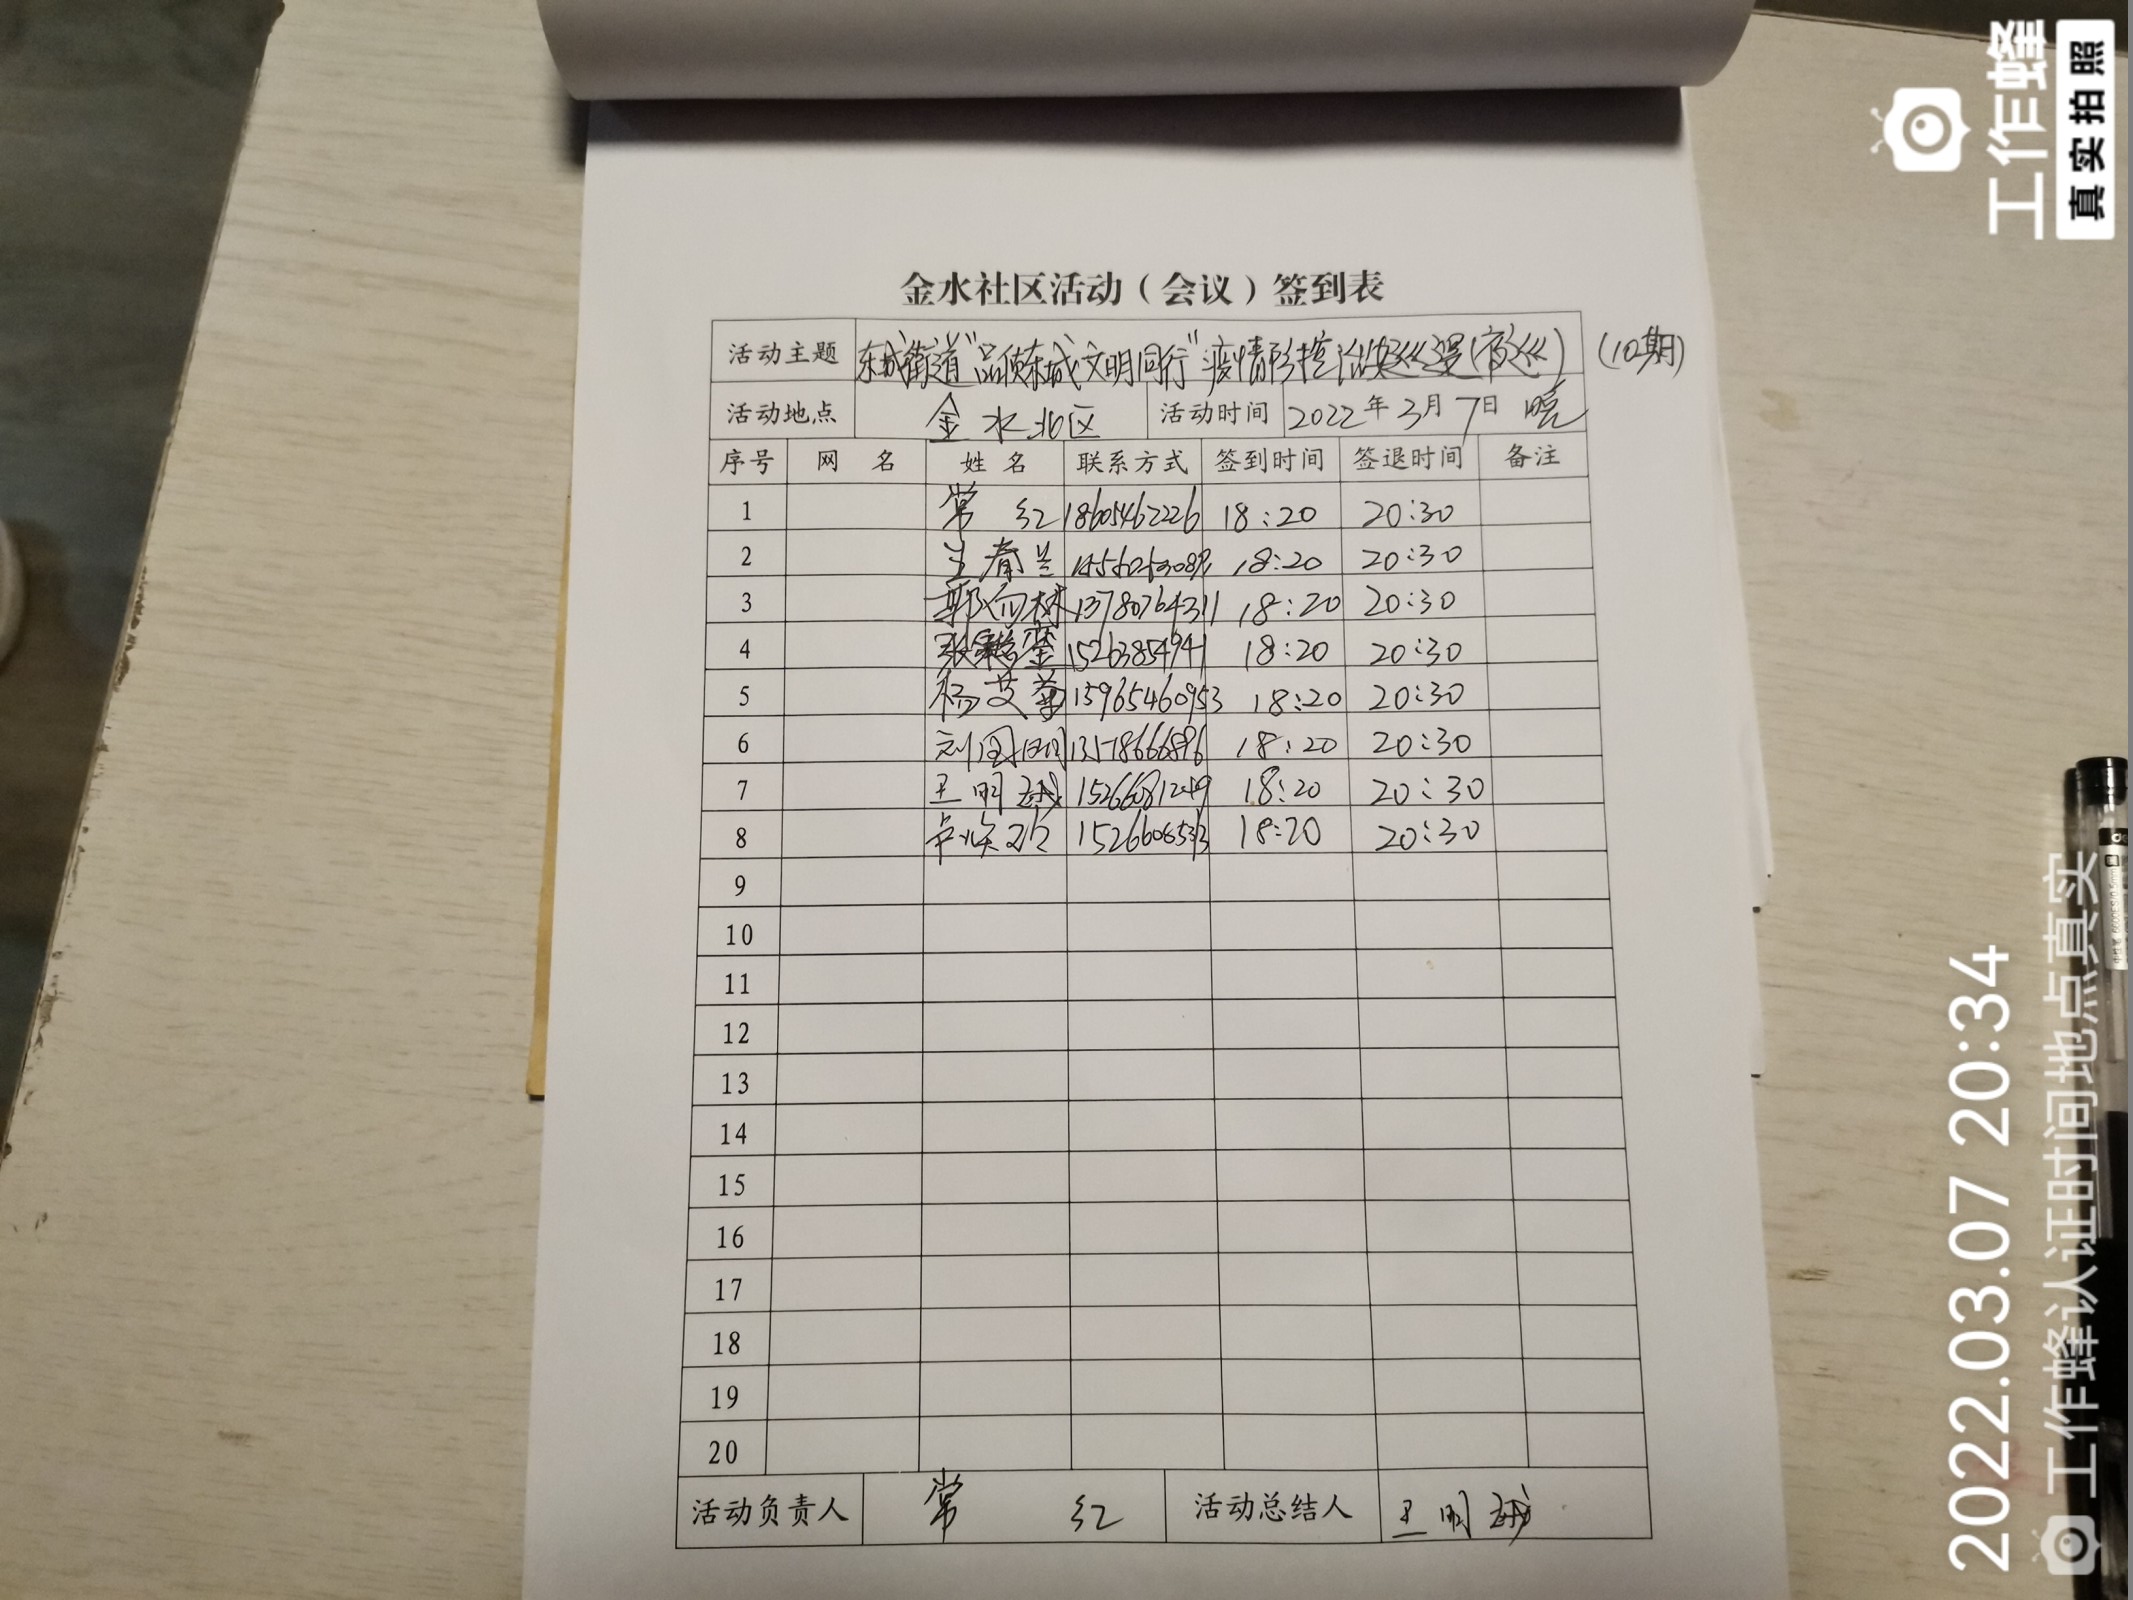 金水社区活动（会议）签到表
活动主题 东城街道"品质东城文明同行"疫情防控 巡逻(夜巡) (10期)
活动地点 金水北区 活动时间 2022年3月7日 晚
序号 网 名 姓 名 联系方式 签到时间 签退时间 备注
1 常 红 18605462226 18:20 20:30
2 王春兰 18:20 20:30
3 郭向林 13780764311 18:20 20:30
4 张 15263854941 18:20 20:30
5 杨艾菊 15965460953 18:20 20:30
6 刘国明 18:20 20:30
7 王明 15266081249 18:20 20:30
8 18:20 20:30
9
10
11
12
13
14
15
16
17
18
19
20
活动负责人 常 红 活动总结人 王明
工作蜂
真实拍照
2022.03.07 20:34
工作蜂认证时间地点真实